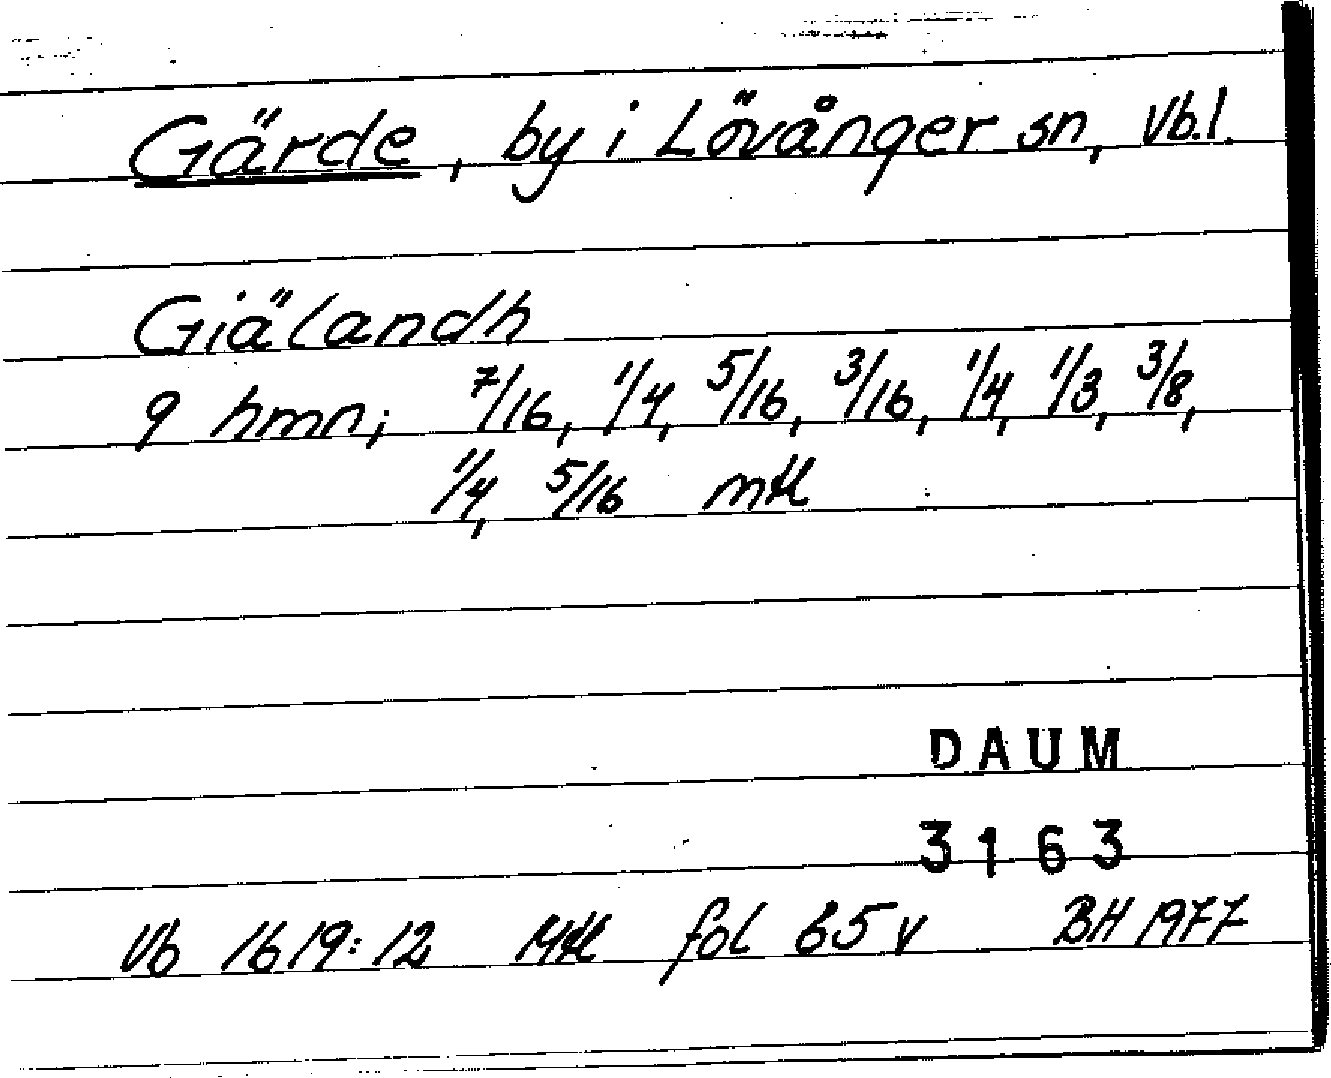 Gärde, by i Lövånger sn, Vb.l.
Giälandh
9 hmn; 7/16, 1/4, 5/16, 3/16, 1/4, 1/3, 3/8,
1/4, 5/16 mtl
DAUM
3163
Vb 1619:12 Mtl fol 65 v BH 1977